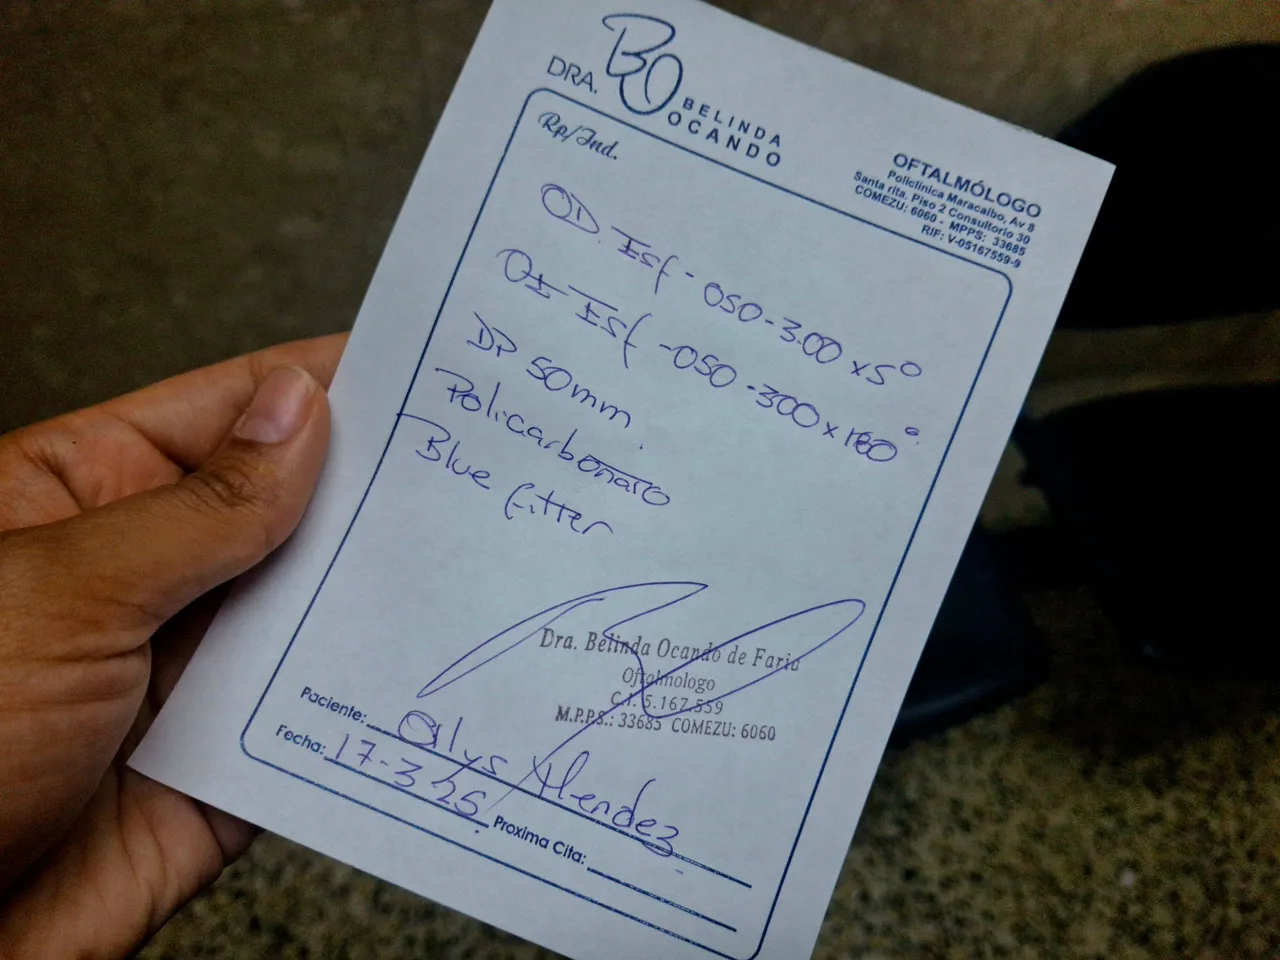 DRA. BO BELINDA
OCANDO
OFTALMÓLOGO
Policlínica Maracaibo, Av 8
Santa rita, Piso 2 Consultorio 30
COMEZU: 6060 - MPPS: 33685
RIF: V-05167559-9
Rp/Ind.
OD. Esf - 050 - 3.00 x 5°
OI - Esf - 050 - 300 x 180°
DP 50mm.
Policarbonato
Blue Filter
Dra. Belinda Ocando de Faria
Oftalmologo
C.I. 5.167.559
M.P.P.S.: 33685 COMEZU: 6060
Paciente: Alys Mendez
Fecha: 17-3-25. Proxima Cita: